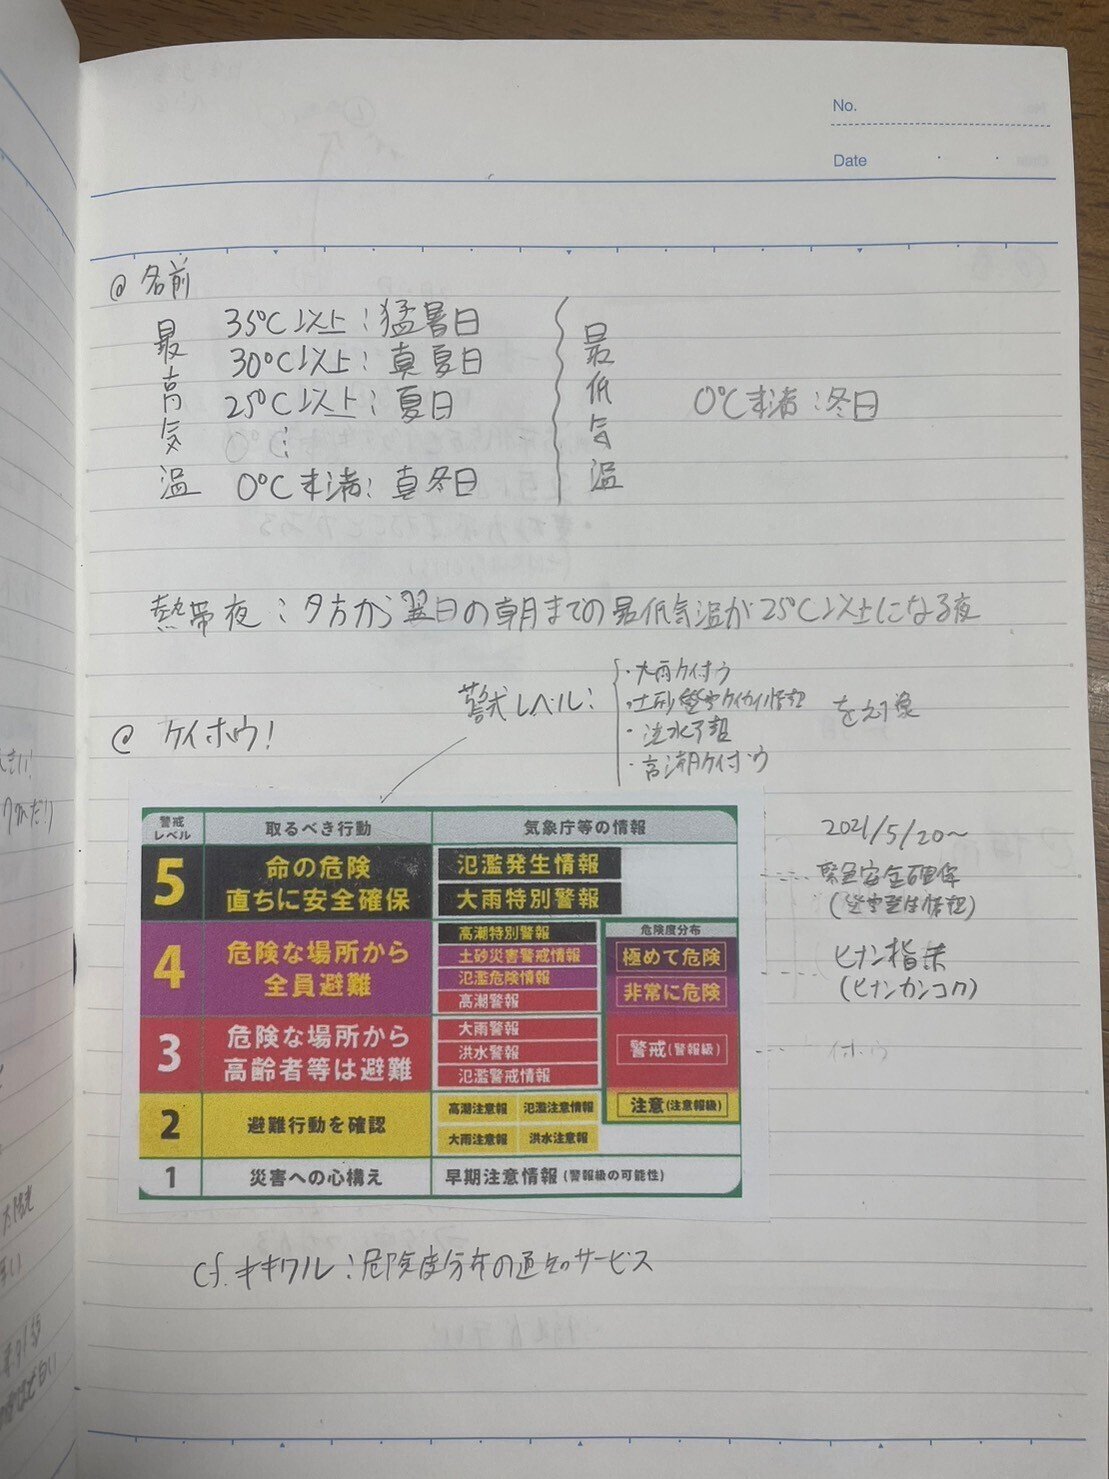 No.
Date
@ 名前
最高気温
35℃以上：猛暑日
30℃以上：真夏日
25℃以上：夏日
0℃未満：真冬日
最低気温
0℃未満：冬日
熱帯夜：夕方から翌日の朝までの最低気温が25℃以上になる夜
@ ケイホウ！
警戒レベル：
・大雨ケイホウ
・土砂災害ケイカイ情報
・洪水予報
・高潮ケイホウ
を対象
警戒レベル 取るべき行動 気象庁等の情報
5 命の危険 直ちに安全確保
氾濫発生情報
大雨特別警報
4 危険な場所から 全員避難
高潮特別警報
土砂災害警戒情報
氾濫危険情報
高潮警報
3 危険な場所から 高齢者等は避難
大雨警報
洪水警報
氾濫警戒情報
2 避難行動を確認
高潮注意報 氾濫注意情報
大雨注意報 洪水注意報
1 災害への心構え 早期注意情報（警報級の可能性）
危険度分布
極めて危険
非常に危険
警戒（警報級）
注意（注意報級）
2021/5/20～
緊急安全確保
(災害発生情報)
ヒナン指示
(ヒナンカンコク)
cf. キキクル：危険度分布の通知サービス